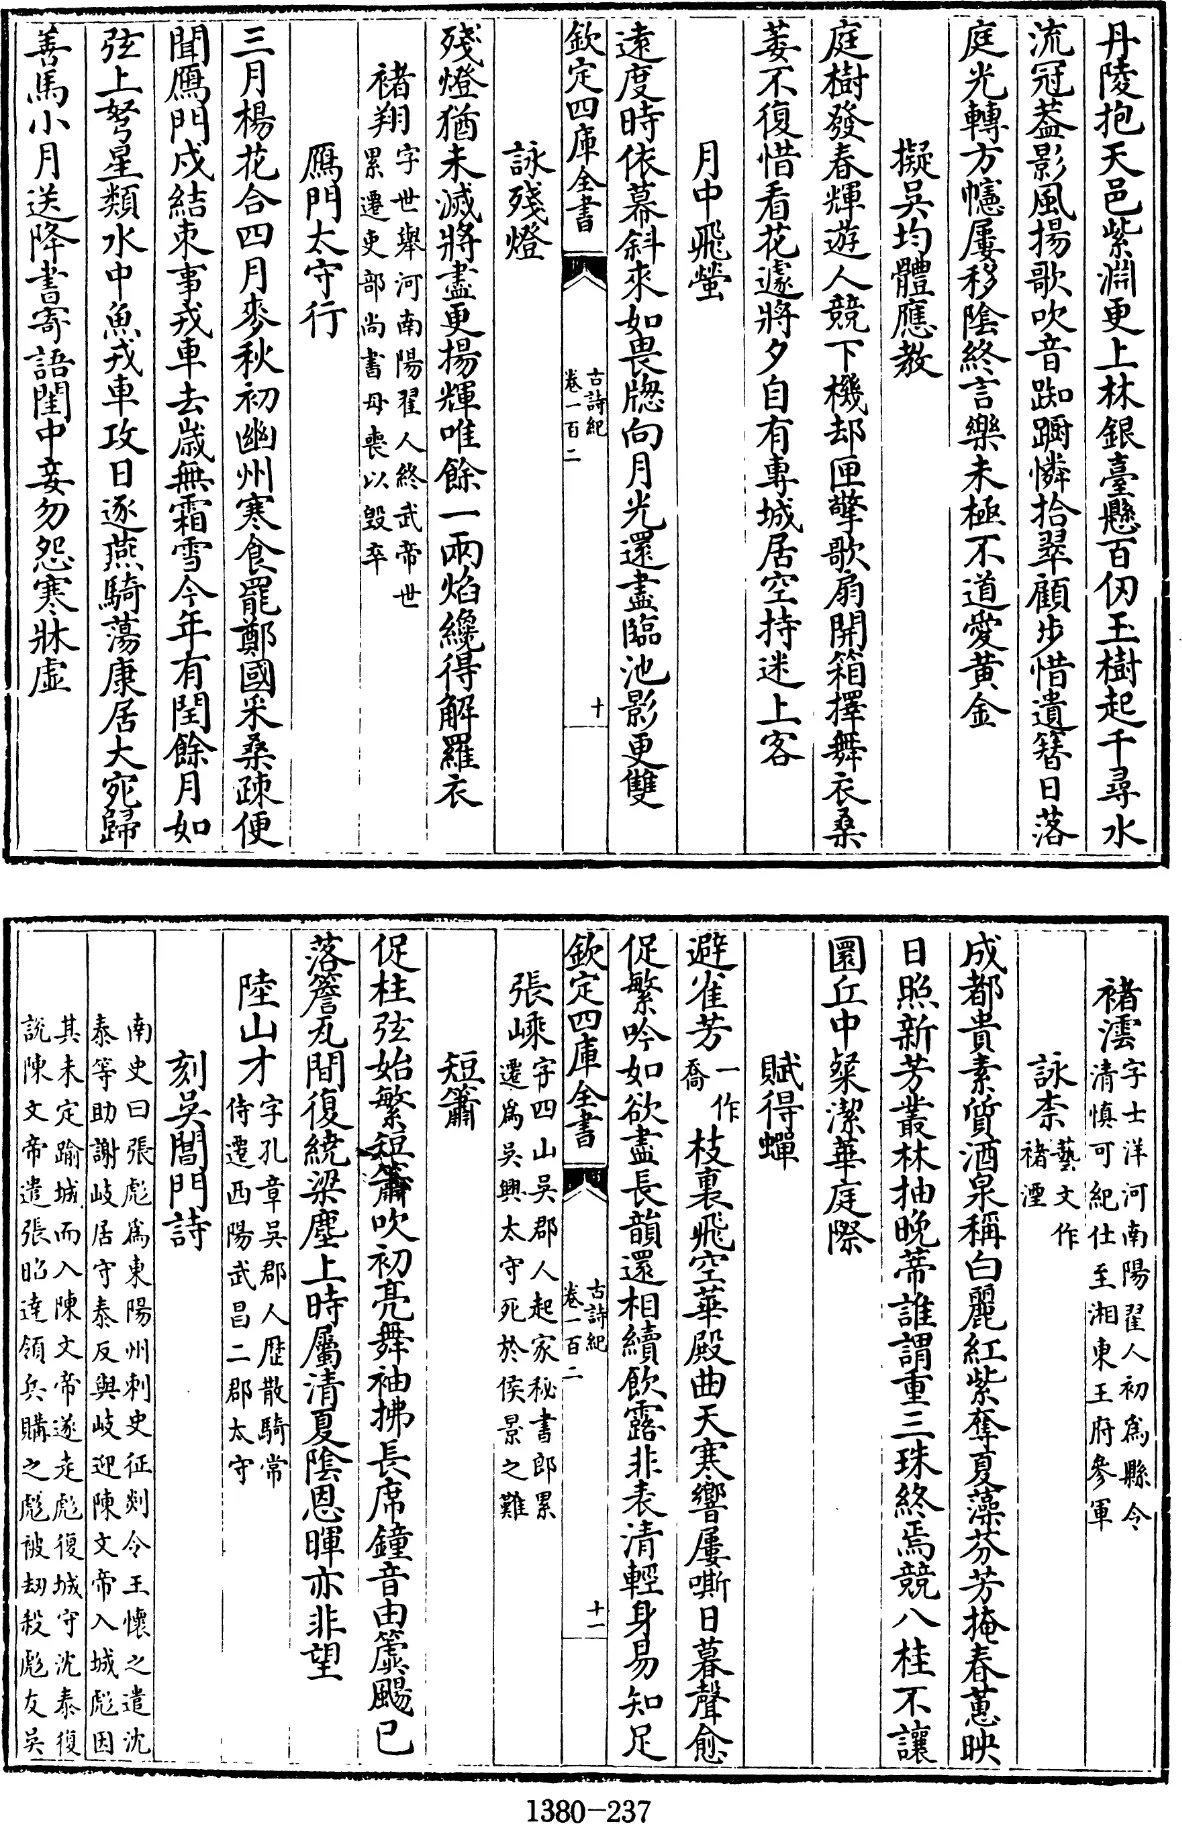 丹陵抱天邑紫淵更上林銀臺懸百仞玉樹起千尋水
流冠葢影風揚歌吹音踟蹰憐拾翠顧步惜遺簮日落
庭光轉方幰屢移陰終言樂未極不道愛黄金
擬吳均體應教
庭樹發春輝遊人競下機却匣擎歌扇開箱擇舞衣桑
萎不復惜看花遽將夕自有專城居空持迷上客
月中飛螢
遠度時依幕斜來如畏牎向月光還盡臨池影更雙
欽定四庫全書
古詩紀
卷一百二
十
詠殘燈
殘燈猶未滅將盡更揚輝唯餘一兩焰纔得解羅衣
褚翔
字世舉河南陽翟人終武帝世
累遷吏部尚書母喪以毁卒
鴈門太守行
三月楊花合四月麥秋初幽州寒食罷鄭國采桑疎便
聞鴈門戍結束事戎車去歲無霜雪今年有閏餘月如
弦上弩星類水中魚戎車攻日逐燕騎蕩康居大宛歸
善馬小月送降書寄語閨中妾勿怨寒牀虚
褚澐
字士洋河南陽翟人初爲縣令
清慎可紀仕至湘東王府參軍
詠柰
藝文作
褚湮
成都貴素質酒泉稱白麗紅紫奪夏藻芬芳掩春蕙映
日照新芳叢林抽晚蒂誰謂重三珠終焉競八桂不讓
圜丘中粲潔華庭際
賦得蟬
避雀芳
一作
喬
枝裏飛空華殿曲天寒響屢嘶日暮聲愈
促繁吟如欲盡長韻還相續飲露非表清輕身易知足
欽定四庫全書
古詩紀
卷一百二
十一
張嵊
字四山吳郡人起家秘書郎累
遷爲吳興太守死於侯景之難
短簫
促柱弦始繁短簫吹初亮舞袖拂長席鐘音由簴颺已
落簷瓦間復繞梁塵上時屬清夏陰恩暉亦非望
陸山才
字孔章吳郡人歴散騎常
侍遷西陽武昌二郡太守
刻吳閶門詩
南史曰張彪爲東陽州刺史征剡令王懷之遣沈
泰等助謝岐居守泰反與岐迎陳文帝入城彪因
其未定踰城而入陳文帝遂走彪復城守沈泰復
說陳文帝遣張昭達領兵購之彪被刼殺彪友吳
1380-237